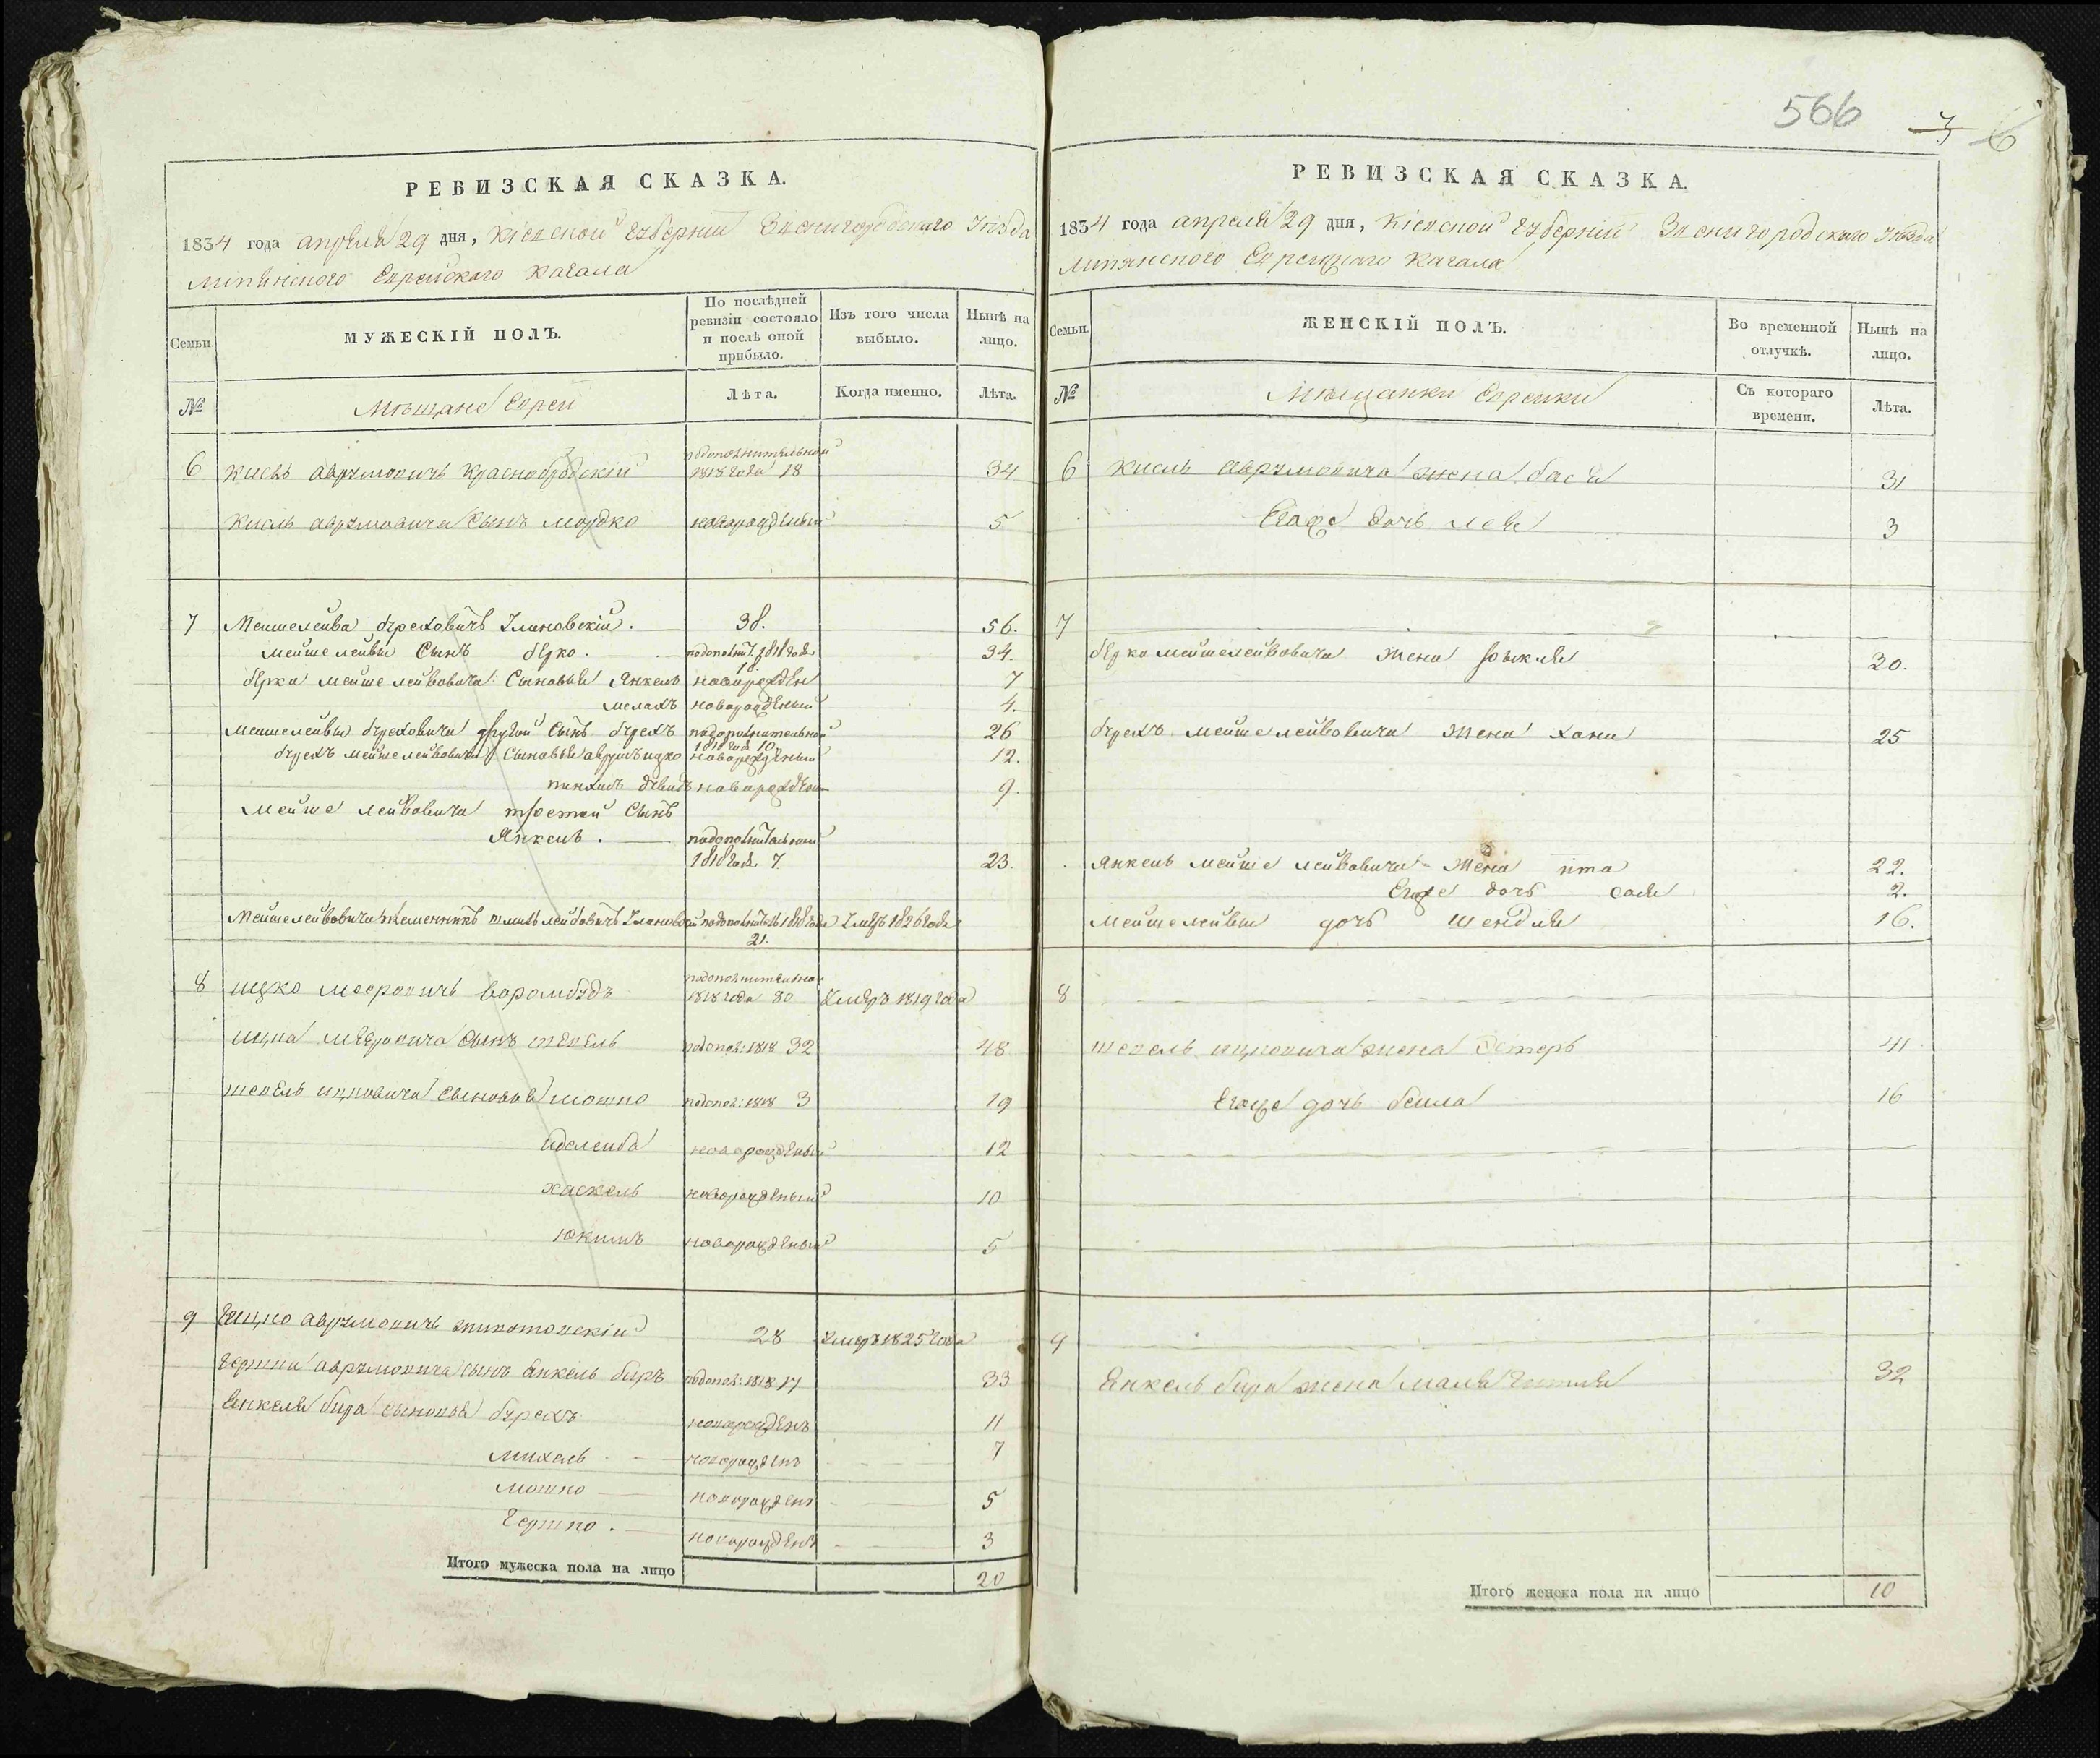 566
7 6
РЕВИЗСКАЯ СКАЗКА.
1834 года апреля 29 дня, Кіевской Губерніи Звенигородскаго Уѣзда
Липянского Еврейскаго Кагала
Семьи. МУЖЕСКІЙ ПОЛЪ. По послѣдней ревизіи состояло и послѣ оной прибыло. Изъ того числа выбыло. Нынѣ на лицо.
№ Мѣщане Евреи Лѣта. Когда именно. Лѣта.
6 Кисль Аврумовичъ Краснобродскій подополнительной 1818 года 18 34
Кисль Аврумовича Сынъ Мордко новорожденный 5
7 Мейшелейва Бурехович Улановскій. 38. 56.
Мейшелейвы Сынъ Берко. подополнит. 1818 года 18. 34.
Берка Мейшелейвовича Сыновья Янкель новорожден 7
Мелахъ новорожденый 4.
Мейшелейвы Буреховича другой Сынъ Бурехъ подополнительной 1818 года 10 26
Бурехъ Мейшелейвовича Сыновья Аврумъ ицко новорожденый 12.
пинхасъ новорожден 9.
Мейше лейвовича третей Сынъ
Янкель. подополнительной 1818 года 7. 23.
Мейшелейвовича племенникъ лейбовичъ Улановский 1818 года 21. Умеръ 1826 года
8 ицко подополнительной 1818 года 80 Умеръ 1819 года
ицка Сынъ шепель подопол: 1818 32 48
шепель ицковича Сыновья мошко подопол: 1818 3 19
новорожденый 12
хаскель новорожденый 10
новорожденый 5
9 Аврумовичъ 28 Умеръ 1825 года
Аврумовича Сынъ Янкель беръ подопол: 1818 17 33
Янкеля бера сыновья бурехъ новорожденъ 11
михель новорожденъ 7
мошко новорожденъ 5
гершко. новорожденъ 3
Итого мужеска пола на лицо 20
РЕВИЗСКАЯ СКАЗКА.
1834 года апреля 29 дня, Кіевской Губерніи Звенигородскаго Уѣзда
Липянского Еврейскаго Кагала
Семьи. ЖЕНСКІЙ ПОЛЪ. Во временной отлучкѣ. Нынѣ на лицо.
№ Мѣщанки Еврейки Съ котораго времени. Лѣта.
6 Кисль Аврумовича жена бася 31
Егоже дочь лея 3
7
Берка мейшелейвовича жена 30.
Бурехъ мейшелейвовича жена хана 25
Янкель мейше лейвовича жена ита 22.
Егоже дочь 2.
Мейшелейвы дочь шендля 16.
8
шепель ицковича жена Эстеръ 41
Егоже дочь бейла 16
9
Янкель бера жена маля 32
Итого женска пола на лицо 10